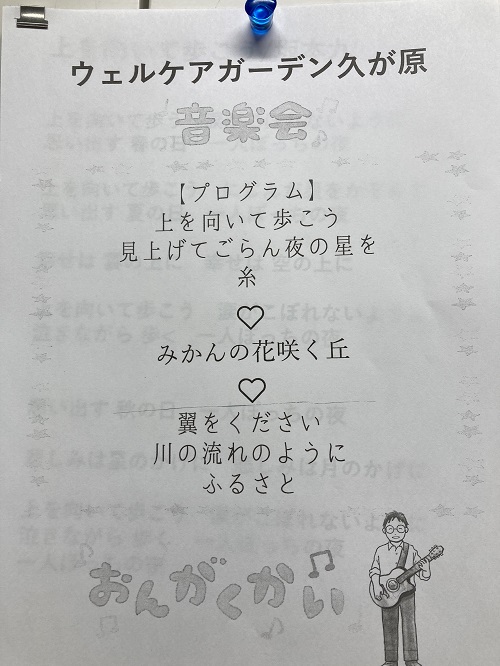 ウェルケアガーデン久が原
音楽会
【プログラム】
上を向いて歩こう
見上げてごらん夜の星を
糸
♡
みかんの花咲く丘
♡
翼をください
川の流れのように
ふるさと
おんがくかい